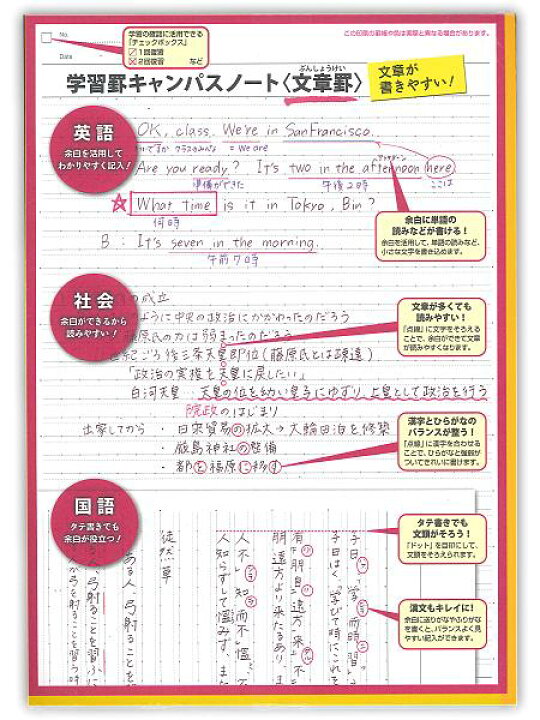 この印刷の罫幅や色は実際と異なる場合があります。
No.
Date
学習の確認に活用できる
「チェックボックス」
1回復習
2回復習 など
ぶんしょうけい
学習罫キャンパスノート〈文章罫〉
文章が
書きやすい!
英語
余白を活用して
わかりやすく記入!
OK, class. We're in SanFrancisco.
= We are
Are you ready? It's two in the afternoon here.
アフタヌーン
準備ができた 午後2時 ここは
☆ What time is it in Tokyo, Bin?
何時
B: It's seven in the morning.
午前7時
余白に単語の
読みなどが書ける!
余白を活用して、単語の読みなど、
小さな文字を書き込めます。
社会
余白ができるから
読みやすい!
の成立
ように中央の政治にかかわったのだろう
藤原氏の力は弱まったのだろう
世紀ごろ後三条天皇即位(藤原氏とは疎遠)
「政治の実権を天皇に戻したい」
白河天皇:天皇の位を幼い皇子にゆずり、上皇として政治を行う
院政のはじまり
出家してから・日宋貿易の拡大→大輪田泊を修築
・厳島神社の整備
・都を福原に移す
文章が多くても
読みやすい!
「点線」に文字をそろえる
ことで、余白ができて文章
が読みやすくなります。
漢字とひらがなの
バランスが整う!
「点線」に漢字を合わせる
ことで、ひらがなと強弱が
ついてきれいに書けます。
国語
タテ書きでも
余白が役立つ!
タテ書きでも
文頭がそろう!
「ドット」を目印にして、
文頭をそろえられます。
漢文もキレイに!
余白に送りがなやふりがな
を書くと、バランスよく見
やすい記入ができます。
子曰、「学而時習
子曰はく、「学びて時にこれを
有朋自遠方来、不
朋遠方より来たるあり、ま
人不知而不慍、不
人知らずして慍みず、また
徒然草
ある人、弓射ることを習ふに
人、弓射ることを習ふ
弓を射ることを習う時